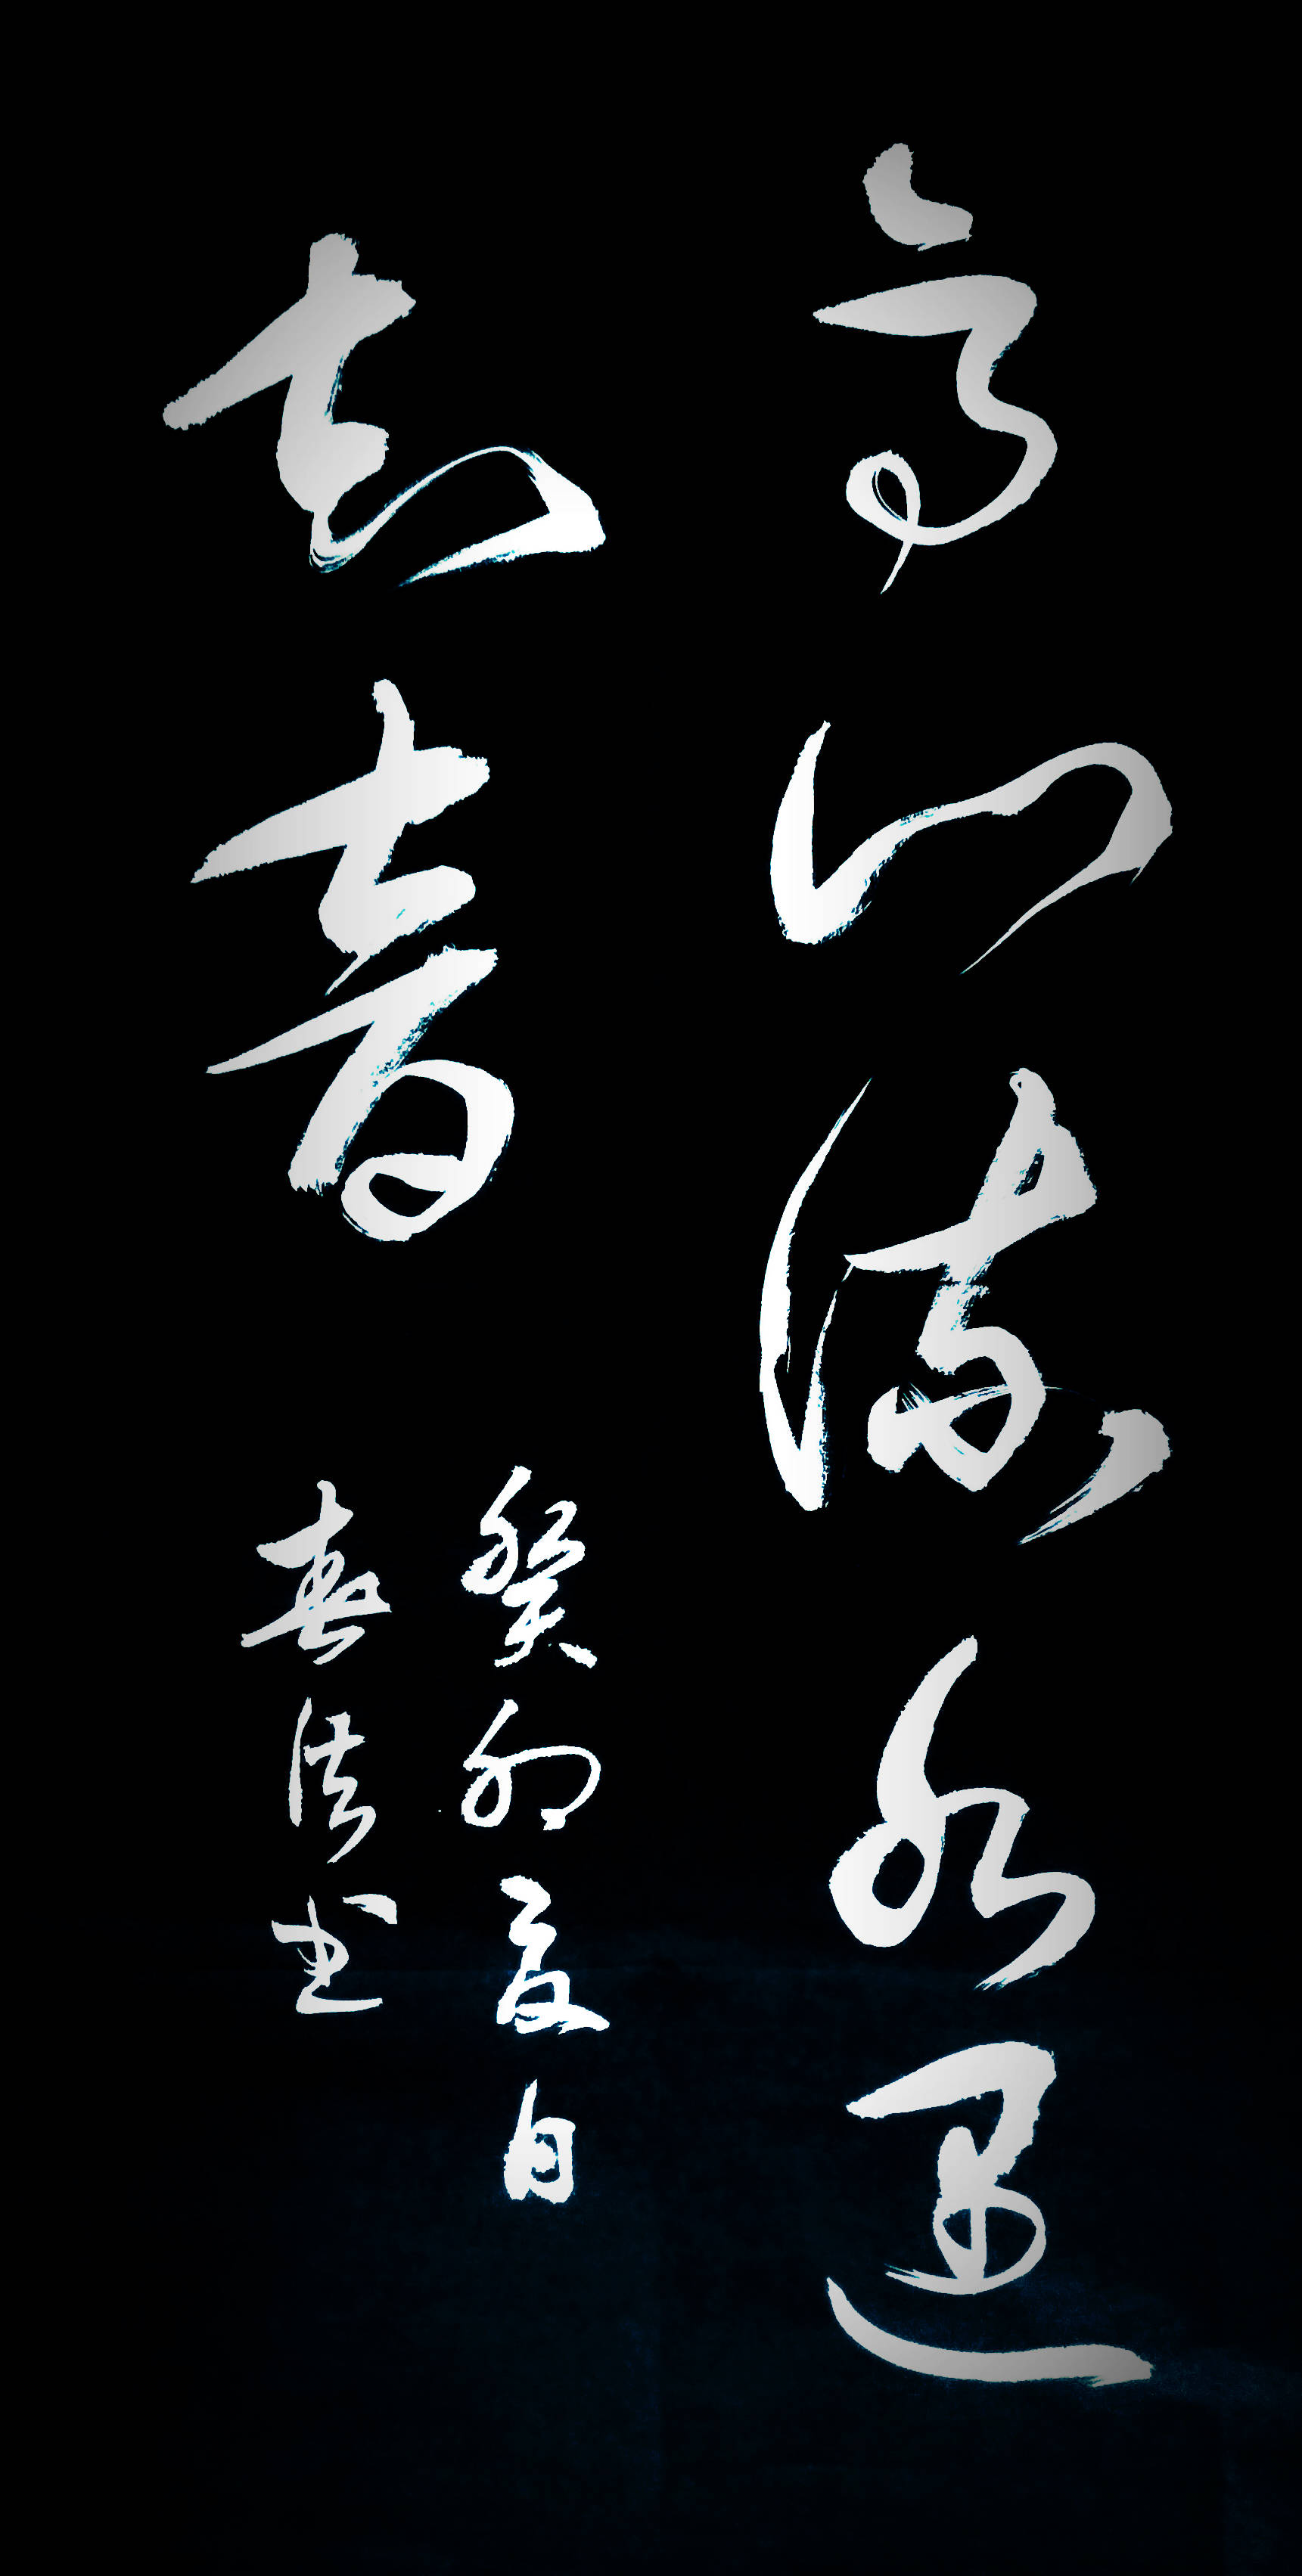 高山流水遇
知音
癸卯夏日
春法书